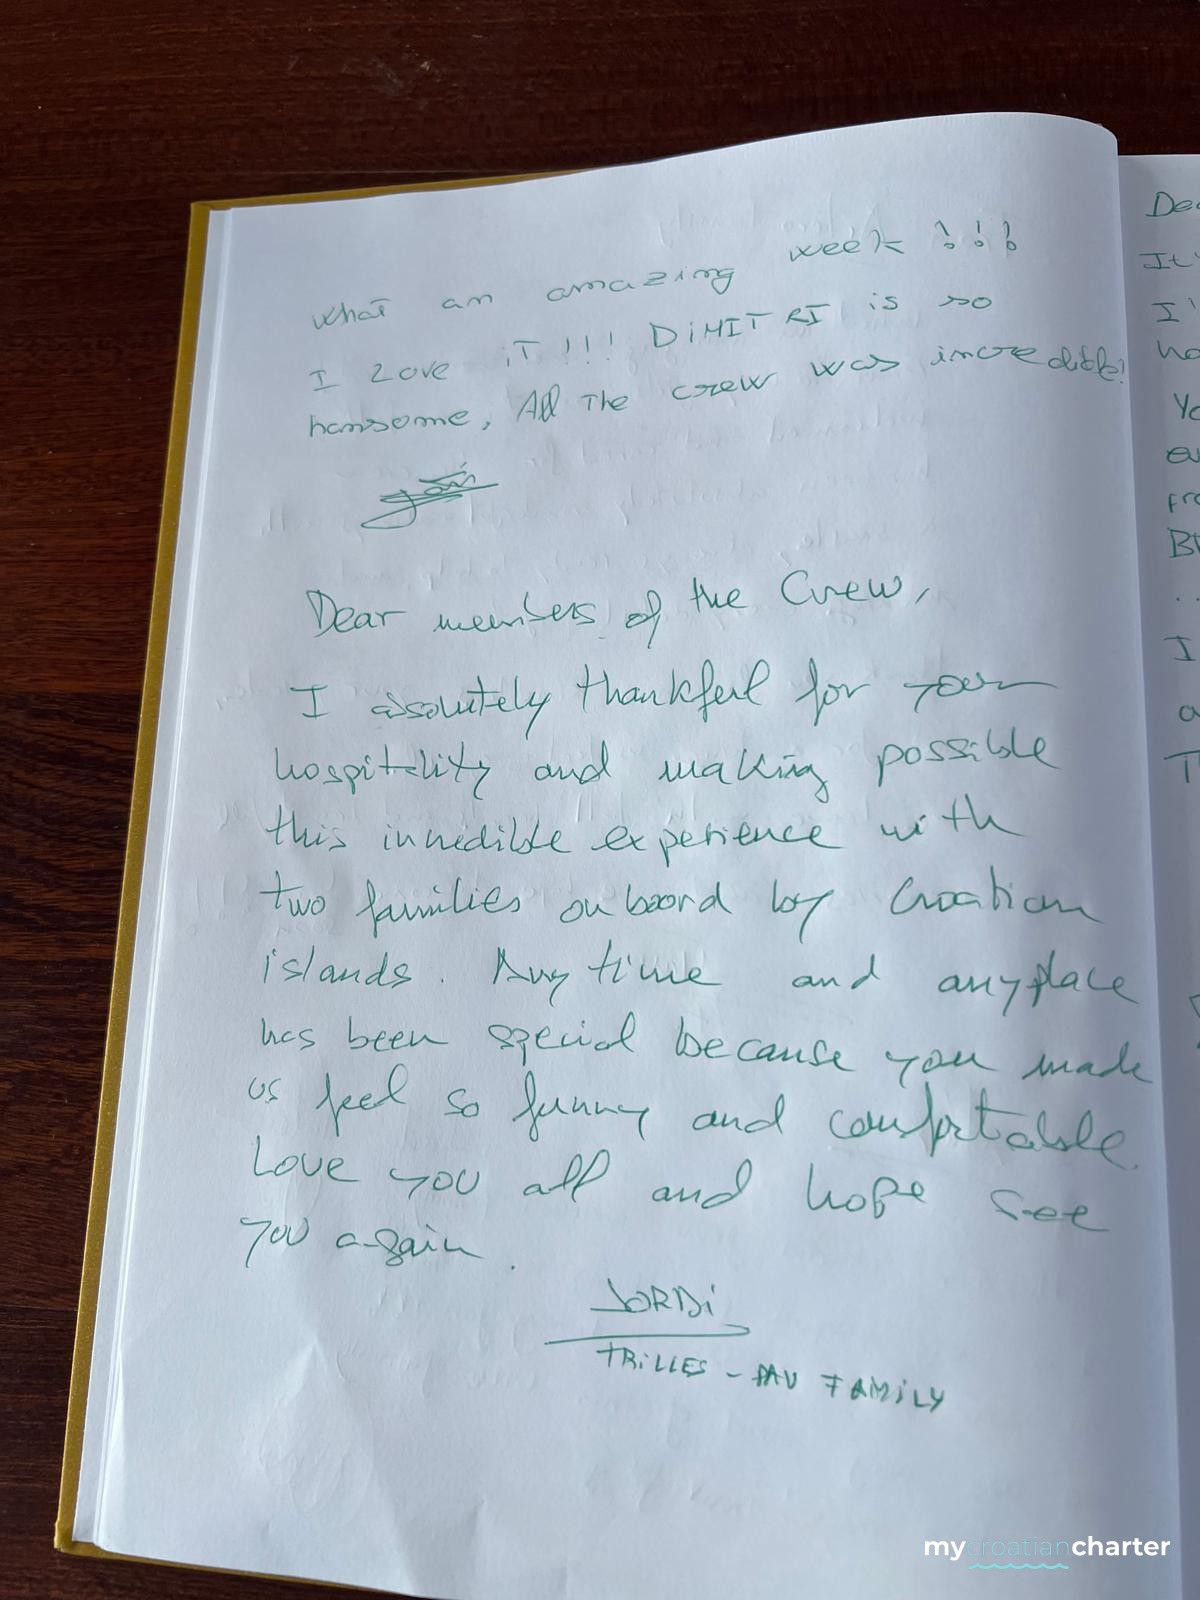 What an amazing week !!!
I love iT!!! DiMITRI is so
hansome, All The crew was incredible!
Dear members of the Crew,
I absolutely thankfull for your
hospitality and making possible
this incredible experience with
two families on board by Croatian
islands. Any time and any place
has been special because you made
us feel so funny and comfortable.
Love you all and hope see
you again.
JORDi
TRiLLES - PAU FAMiLY
Dea
It'
I'
ha
Yo
fro
I
a
T
mycroatiancharter